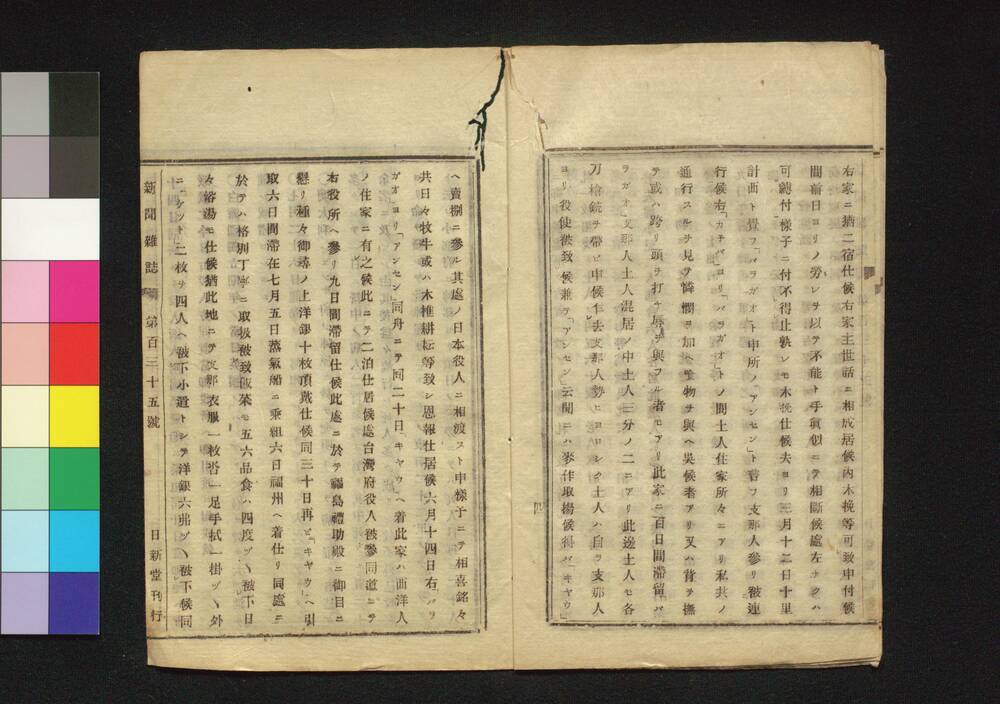 右家ニ猶二宿仕候右家主世話ニ相成居候内木挽等可致申付候
間前日ヨリノ労レヲ以テ不能ト手眞似ニテ相斷候處左ナクハ
可縛付樣子ニ付不得止熟レモ木挽仕候去ヨリ三月十二日十里
計西ト覺フ「バラガオ」ト申所ノ「アンセン」ト言フ支那人參リ被連
行候右「カチバヨ」リ「バラガオ」トノ間土人住家所々ニアリ私共ノ
通行スルヲ見テ憐憫ヲ加ヘ食物ヲ與ヘ呉候者アリ又ハ背ヲ撫
テ或ハ跨リ頭ヲ打ケ辱ヲ與フル者モアリ此家ニ百日間滯留「バ
ラガオ」支那人土人混居ノ中土人三分ノ二ニアリ此邊土人モ各
刀槍銃ヲ帶ビ申候乍去支那人勢ヒヨロシク土人ハ自ラ支那人
ヨリ役使被致候兼テ「アンセン」云聞ニハ麥作取揚候得バ「キヤウ」
四
ヘ賣捌ニ參ル其處ノ日本役人ニ相渡スト申樣子ニテ相喜銘々
共日々牧牛或ハ木推耕耘等致シ恩報仕居候六月十四日右「バラ
ガオ」ヨリ「アンセン」同舟ニテ同二十日「キヤウ」ヘ着此家ハ西洋人
ノ住家ニ有之候此ニテ二泊仕居候處台灣府役人被參同道ニテ
右役所ヘ參リ九日間滯留仕候此處ニ於テ福島禮助殿ニ御目ニ
懸リ種々御尋ノ上洋銀十枚頂戴仕候同三十日再ビ「キヤウ」ヘ引
取六日間滯在七月五日蒸氣船ニ乘組六日福州ヘ着仕リ同處ニ
於テハ格別丁寧ニ取扱被致飯菜モ五六品食ハ四度ヅヽ被下日
々浴湯モ仕候猶此地ニテ支那衣服一枚沓一足手拭一掛ヅヽ外
ニ「ケット」二枚ヲ四人ヘ被下小遣トシテ洋銀六弗ヅヽ被下候同
新聞雜誌 第百三十五號 日新堂刊行